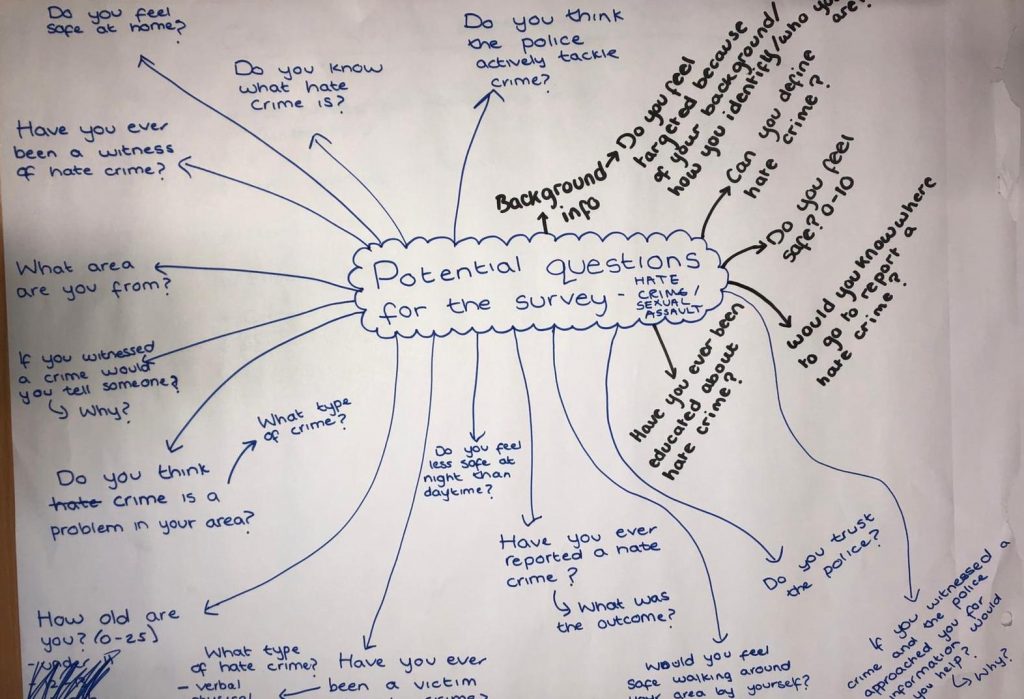 Do you feel
safe at home?
Do you know
what hate
crime is?
Do you think
the police
actively tackle
crime?
Background
info
Do you feel
targeted because
of your background/
how you identify/who you
are?
Can you define
hate crime?
Do you feel
safe? 0-10
would you know where
to go to report a
hate crime?
Have you ever
been a witness
of hate crime?
Potential questions
for the survey -
HATE
CRIME/
SEXUAL
ASSAULT
What area
are you from?
If you witnessed
a crime would
you tell someone?
Why?
Have you ever been
educated about
hate crime?
What type
of crime?
Do you think
hate crime is a
problem in your area?
Do you feel
less safe at
night than
daytime?
Have you ever
reported a hate
crime?
What was
the outcome?
Do you trust
the police?
If you witnessed a
crime and the police
approached you for
information would
you help?
Why?
How old are
you? (0-25)
What type
of hate crime?
- verbal
Have you ever
been a victim
crime?
Would you feel
safe walking around
your area by yourself?